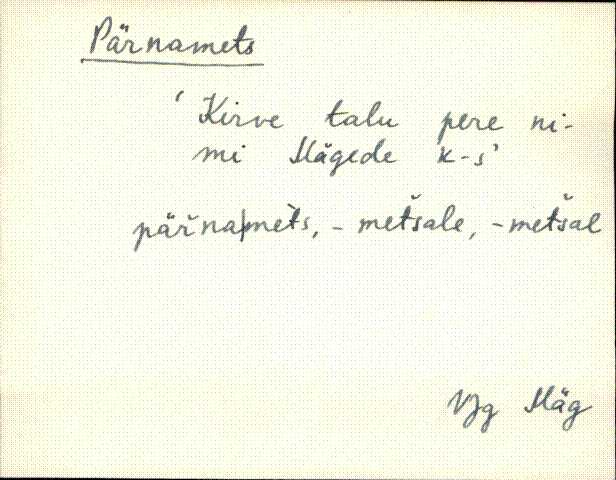 Pärnamets
'Kirve talu pere ni-
mi Mägede k-s'
päřna|mèts, -metšale, -metšal
VJg Mäg